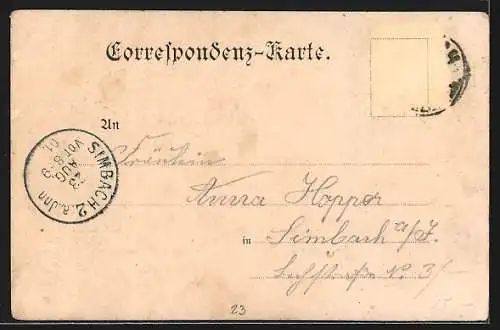 Correspondenz-Karte.
An
Fräulein
Anna Hopper
in Simbach a/I.
N. 3/
SIMBACH 2 a. Inn
AUG
VOR 8-9
01
23